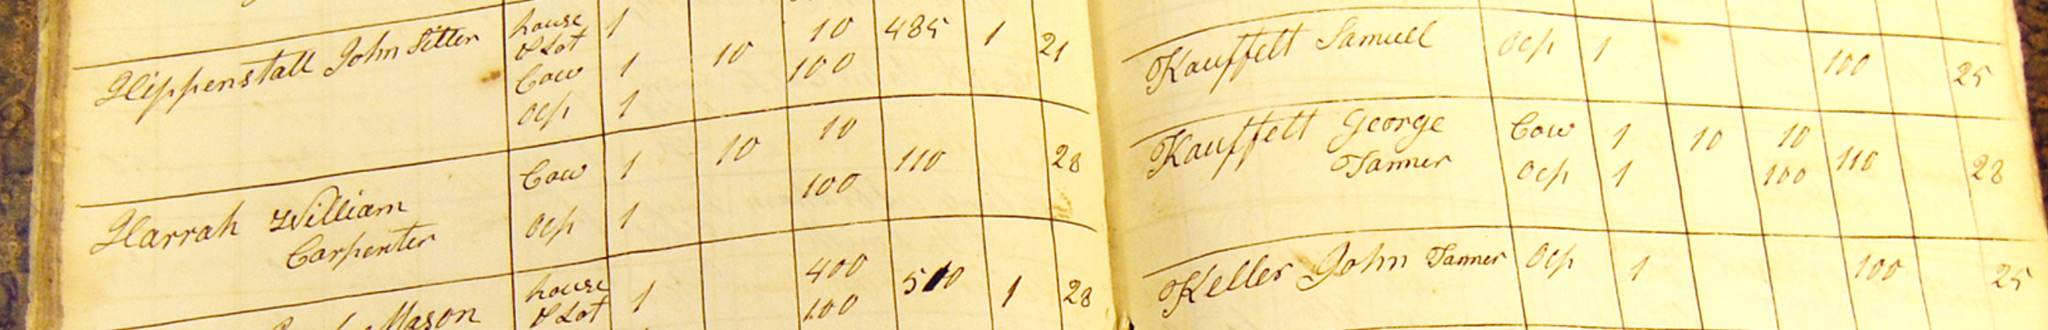 house 1 10 485 1 21
Hippenstall John Sitler & Lot
Cow 1 10 100
Ocp 1
Cow 1 10 10 110 28
Harrah William Ocp 1 100
Carpenter
house 1 400 510 1 28
Mason & Lot 100
Kauffelt Samuel Ocp 1 100 25
Kauffelt George Cow 1 10 10 110 28
Tanner Ocp 1 100
Keller John Tanner Ocp 1 100 25